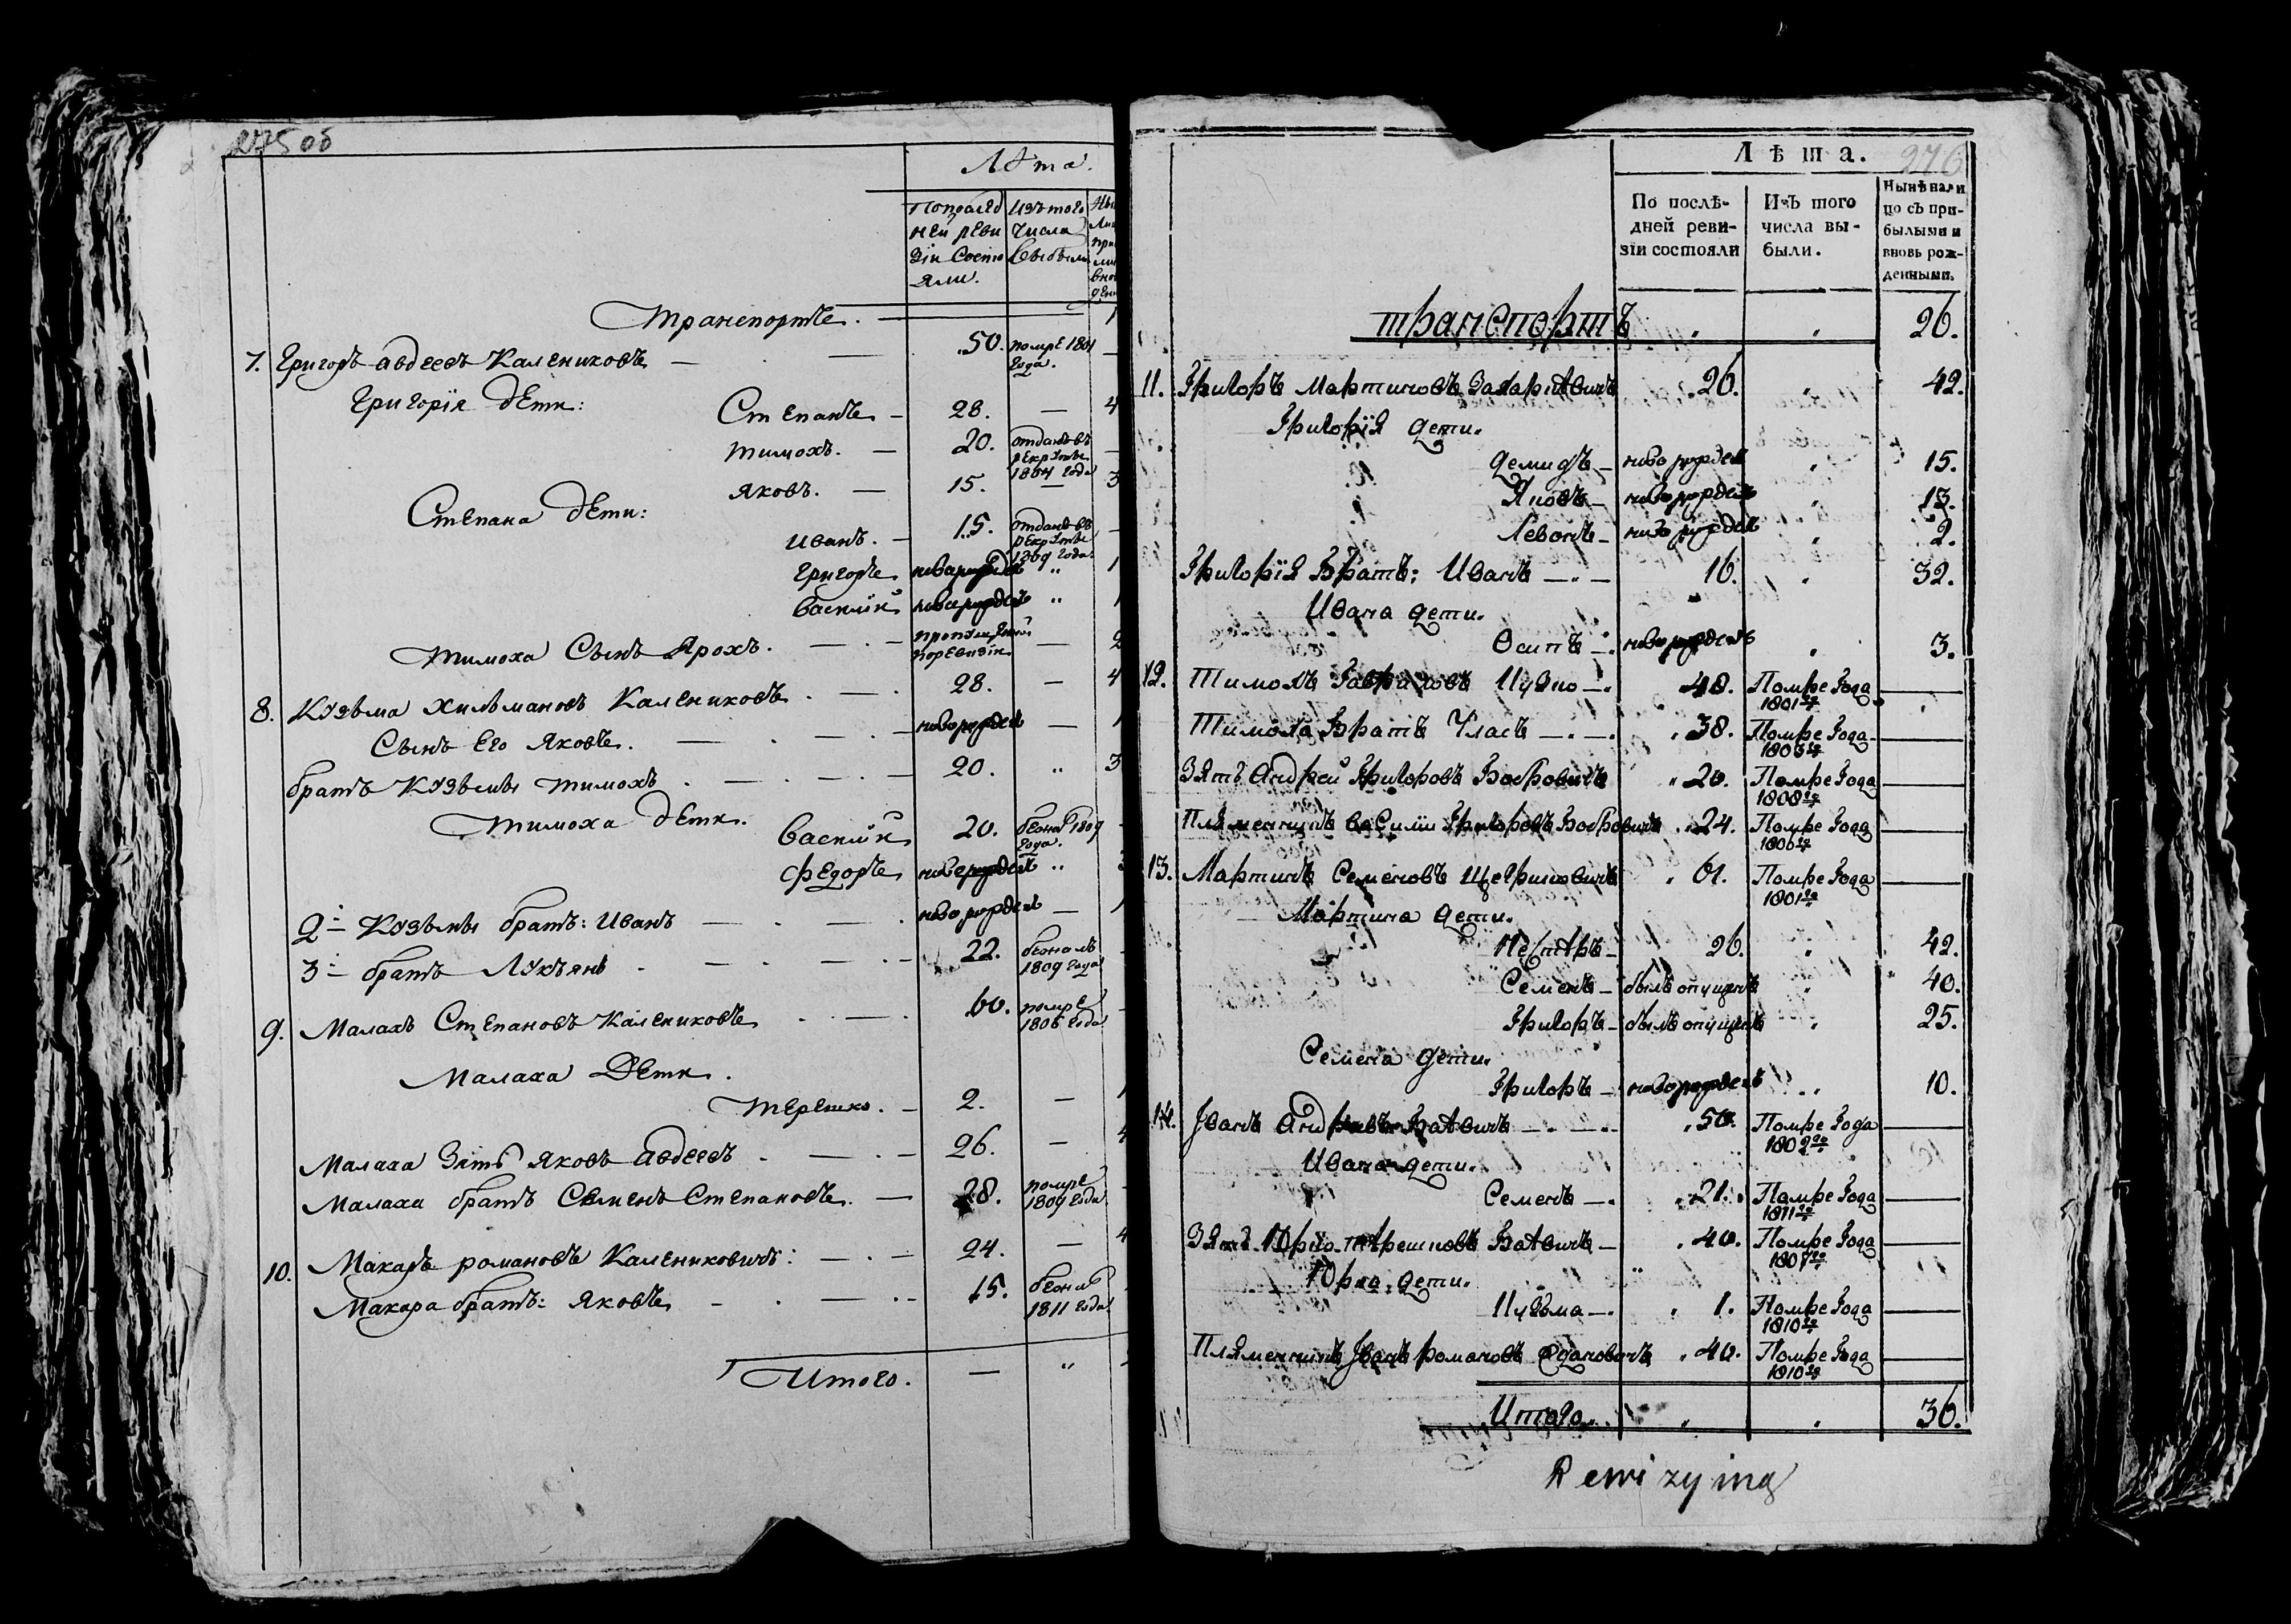 275 об
Лѣта.
По послѣд
ней реви
зiи Состо
яли.
Изъ того
Числа
Выбыли
транспортъ.
7. Григоръ авдеевъ Калениковъ — 50. помре 1801
года.
Григорiя дети:
Степанъ — 28. — 4
тимохъ. — 20. отданъ въ
рекруты
1804 года
яковъ. — 15. — 3
Степана дети:
иванъ. — 15. отданъ въ
рекруты
1809 года
григоръ новорожденъ " 1
василiй новорожденъ " 1
тимоха Сынъ Ярохъ. — пропущенный
по ревизiи — 2
8. Кузьма Хильмановъ Калениковъ. — 28. — 4
Сынъ его яковъ. — новорожденъ — 1
братъ Кузьмы тимохъ — 20. " 3
тимоха дети.
василiй 20. бежалъ 1809
года.
федоръ новорожденъ " 3
2й Кузьмы братъ: иванъ — новорожденъ — 1
3й братъ Лукъянъ — 22. бежалъ
1809 года
9. Малахъ Степановъ Калениковъ — 60. помре
1806 года
Малаха Дети.
терешко. — 2. — 1
Малаха зять яковъ авдеевъ — 26. — 4
Малаха братъ Семенъ Степановъ. — 28. помре
1809 года
10. Макаръ романовъ Калениковичъ: — 24. — 4
Макара братъ: яковъ — 15. бежалъ
1811 года
Итого. — "
276
Лѣта.
По послѣ-
дней реви-
зiи состояли
Изъ того
числа вы-
были.
Нынѣ нали
цо съ при-
былыми и
вновь рож-
денными.
транспортъ . . 26.
11. Григоръ Мартиновъ Захарѣвичъ 26. . 42.
Григорiя дети.
Демидъ — новорожденъ . 15.
Яковъ — новорожденъ . 13.
Левонъ — новорожденъ . 2.
Григорiя Братъ: Иванъ — 16. . 32.
Ивана дети.
Осипъ — новорожденъ . 3.
12. Тимохъ Гавриловъ — 48. Помре Года
1801го
Тимоха Братъ Уласъ — 38. Помре Года
1803го
Зять Андрей Григоровъ Бобровичъ 20. Помре Года
1808го
Пляменникъ василiи Григоровъ Бобровичъ 24. Помре Года
1806го
13. Мартинъ Семеновъ 61. Помре Года
1801го
Мартина дети.
Нестѣръ — 26. . 42.
Семенъ — былъ опущенъ . 40.
Григоръ — былъ опущенъ . 25.
Семена дети.
Григоръ — новорожденъ . 10.
14. Iванъ Андреевъ Батвичъ — 50. Помре Года
1809го
Ивана дети.
Семенъ — 21. Помре Года
1811го
Зять Юрко тѣрешковъ Батвичъ — 40. Помре Года
1807го
Юрка дети.
Кузьма — 1. Помре Года
1810го
Пляменникъ Iванъ романовъ 40. Помре Года
1810го
Итого. . . 36.
Rewizyina